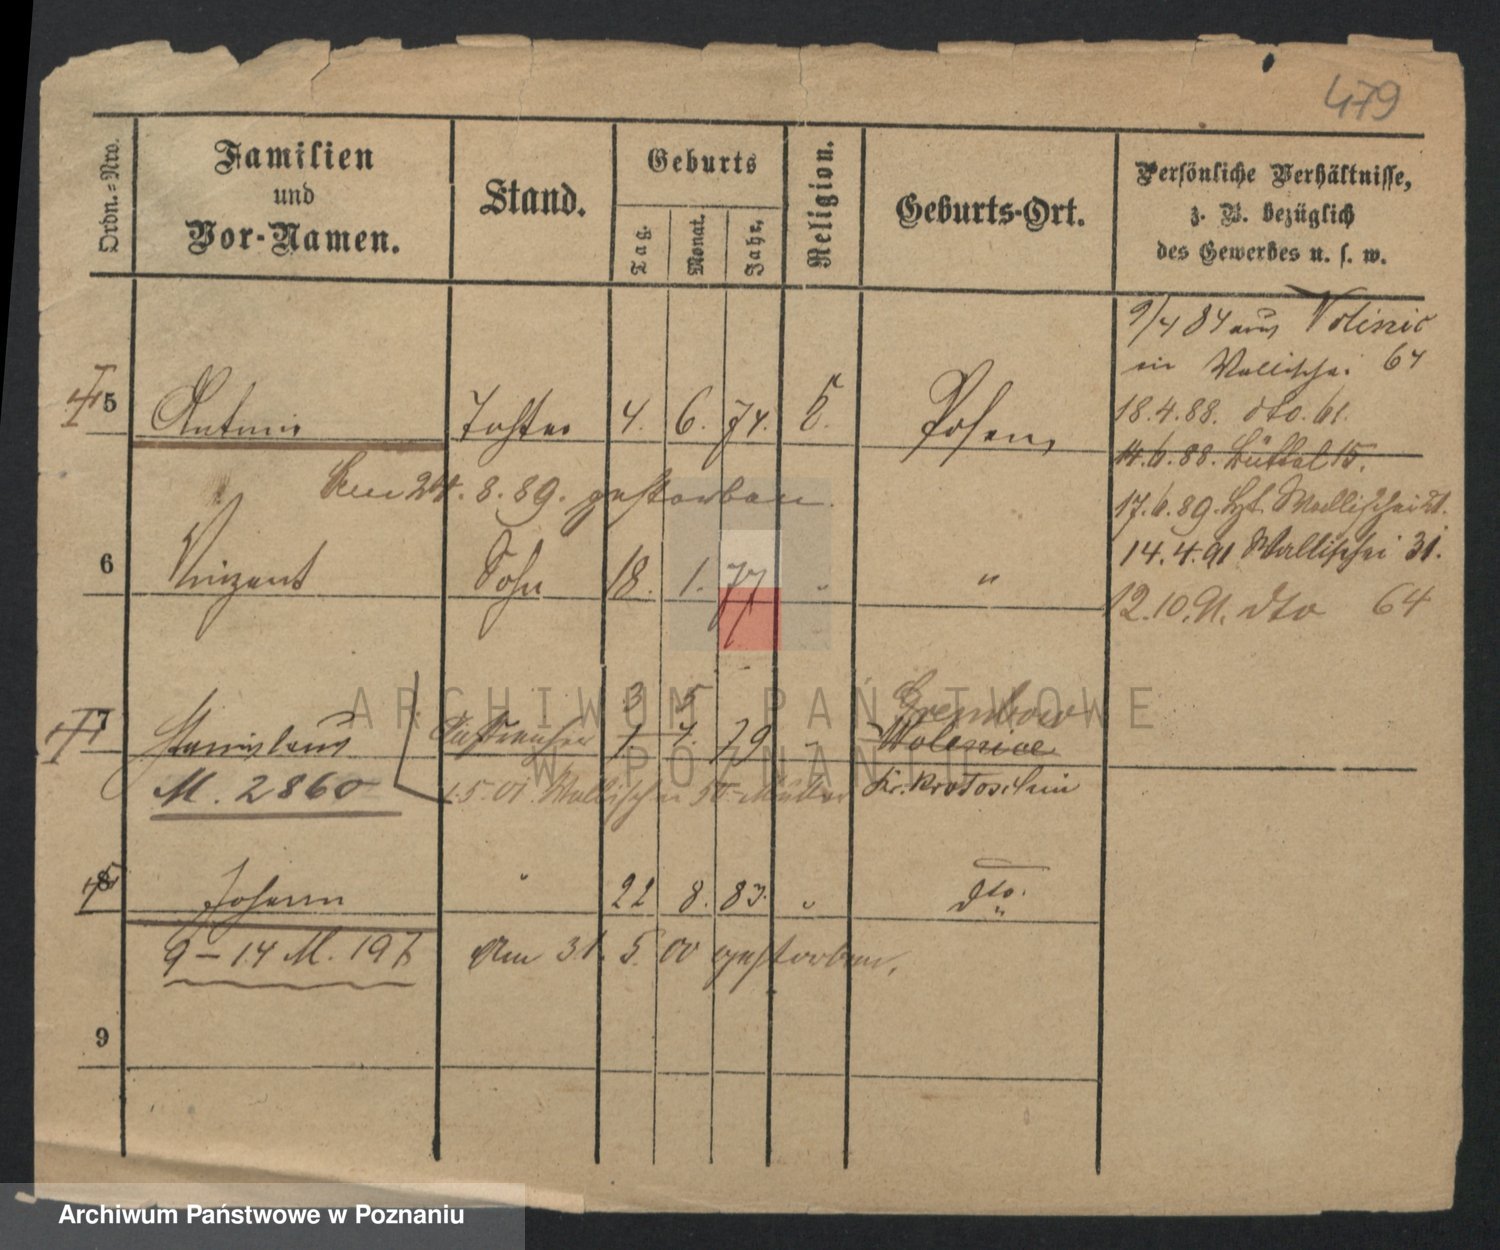 479
Ordn.=Nro.
Familien
und
Vor-Namen.
Stand.
Geburts
Tag.
Monat.
Jahr.
Religion.
Geburts-Ort.
Persönliche Verhältnisse,
z. B. bezüglich
des Gewerbes u. s. w.
9/4 84 aus
in Wallischei 64
18.4.88. dto. 61.
14.6.88. Büttel 15.
17.6.89. Wallischei
14.4.91 Wallischei 31.
12.10.91. dto 64
5 Antonie Tochter 4. 6. 74. k. Posen
Den 24. 8. 89. gestorben.
6 Vinzent Sohn 18. 1. 77 " "
3 5
7 Stanislaus 1. 7. 79 "
M. 2860
Wallischei
Kr. Krotoschin
8 Johann " 22 8. 83. " dto.
9 – 14 M. 197 Am 31. 5. 00 gestorben.
9
ARCHIWUM PAŃSTWOWE
W POZNANIU
Archiwum Państwowe w Poznaniu